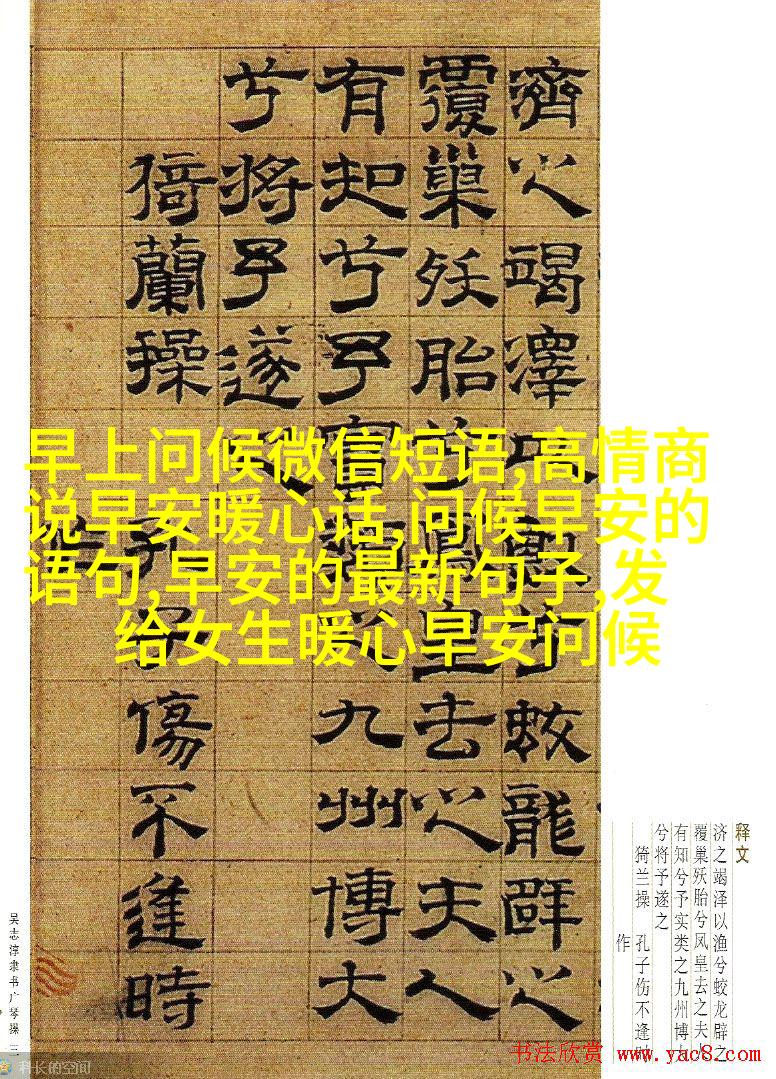 濟之竭澤以漁兮蛟龍辟之
覆巢殀胎兮鳳皇去之夫人
有知兮予實類之九州博大
兮將予遂之
猗蘭操 孔子傷不逢時
作
早上问候微信短语,高情商
说早安暖心话,问候早安的
语句,早安的最新句子,发
给女生暖心早安问候
释文
济之竭泽以渔兮蛟龙辟之
覆巢殀胎兮凤皇去之夫
有知兮予实类之九州博
兮将予遂之
猗兰操 孔子伤不逢时
作
吴志淳隶书广琴操 三
科长的空间
书法欣赏 www.yac8.com